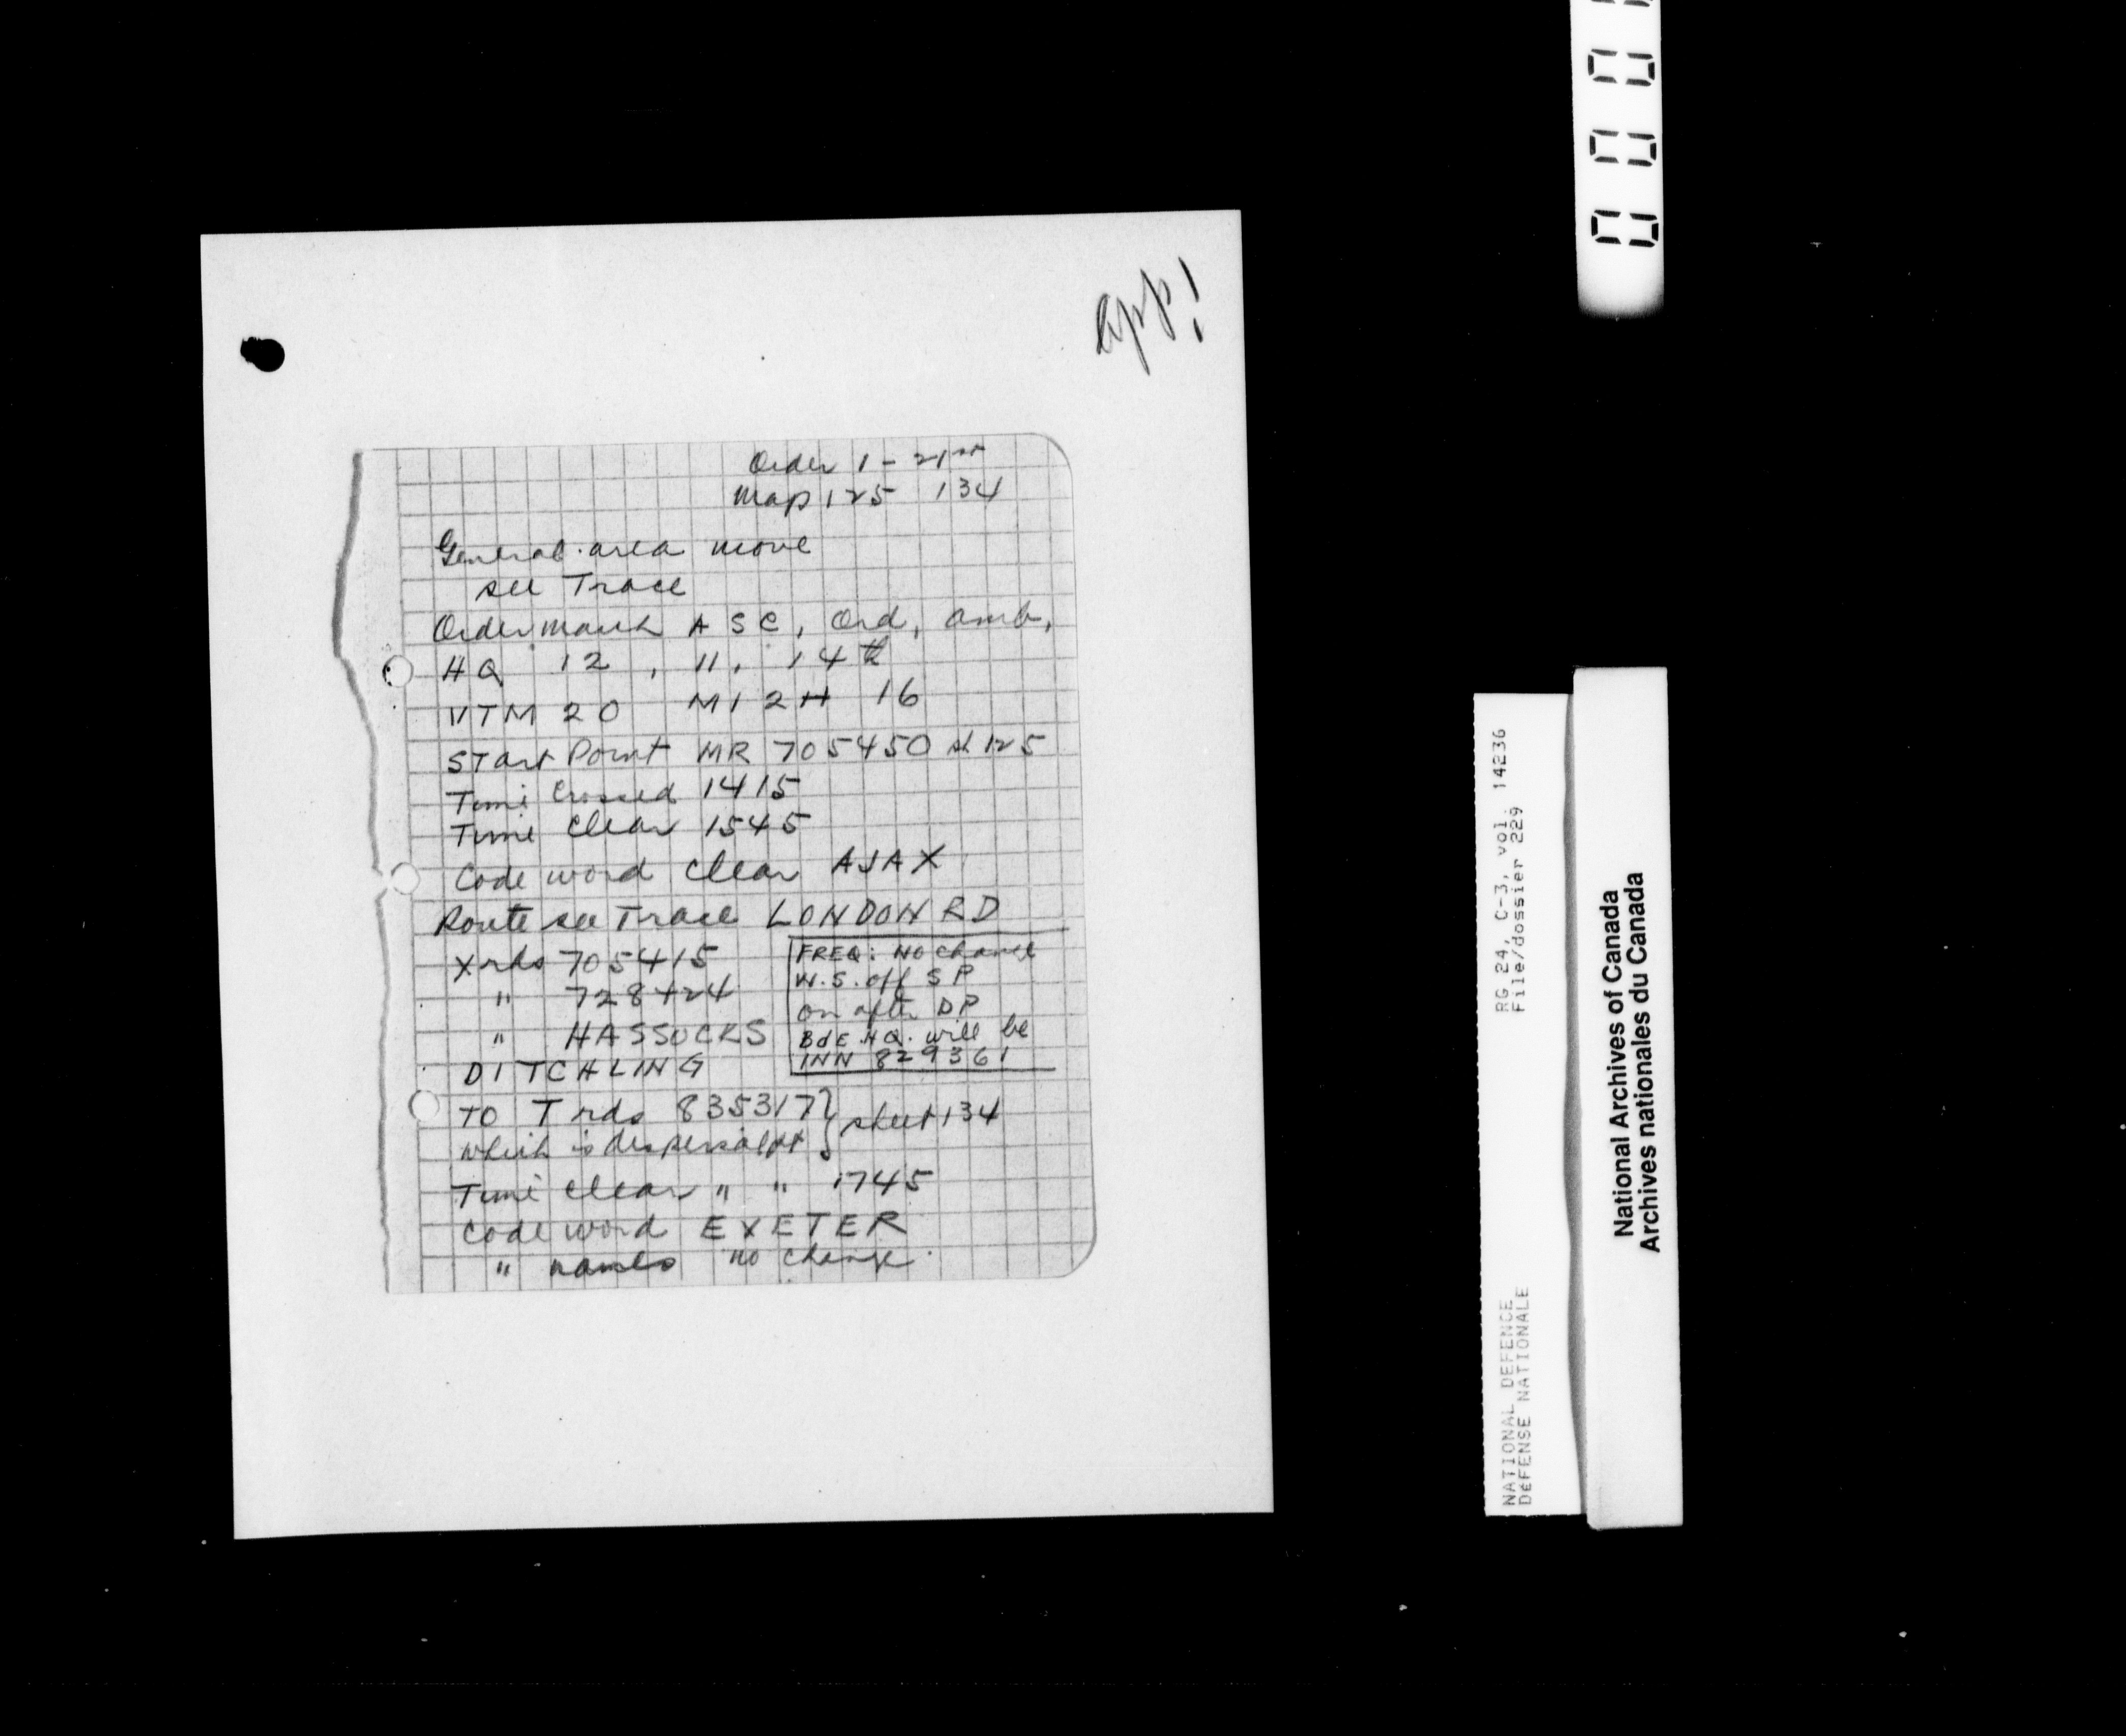 app!
Order 1 - 21st
Map 125 134
General area move
see Trace
Order march A S C, Ord, Amb,
HQ 12, 11, 14th
VTM 20 MI 2H 16
START Point MR 705450 sh 125
Time Crossed 1415
Time Clear 1545
Code word clear AJAX
Route see Trace LONDON RD
X rds 705415
" 728424
" HASSOCKS
DITCHLING
FREQ: NO change
W.S. off S P
on after DP
BdE HQ. will be
INN 829361
TO T rds 835317 } sheet 134
which is dispersal pt
Time clear " " 1745
Code word EXETER
" names no change.
RG 24, C-3, vol. 14236
File/dossier 229
NATIONAL DEFENCE
DÉFENSE NATIONALE
National Archives of Canada
Archives nationales du Canada